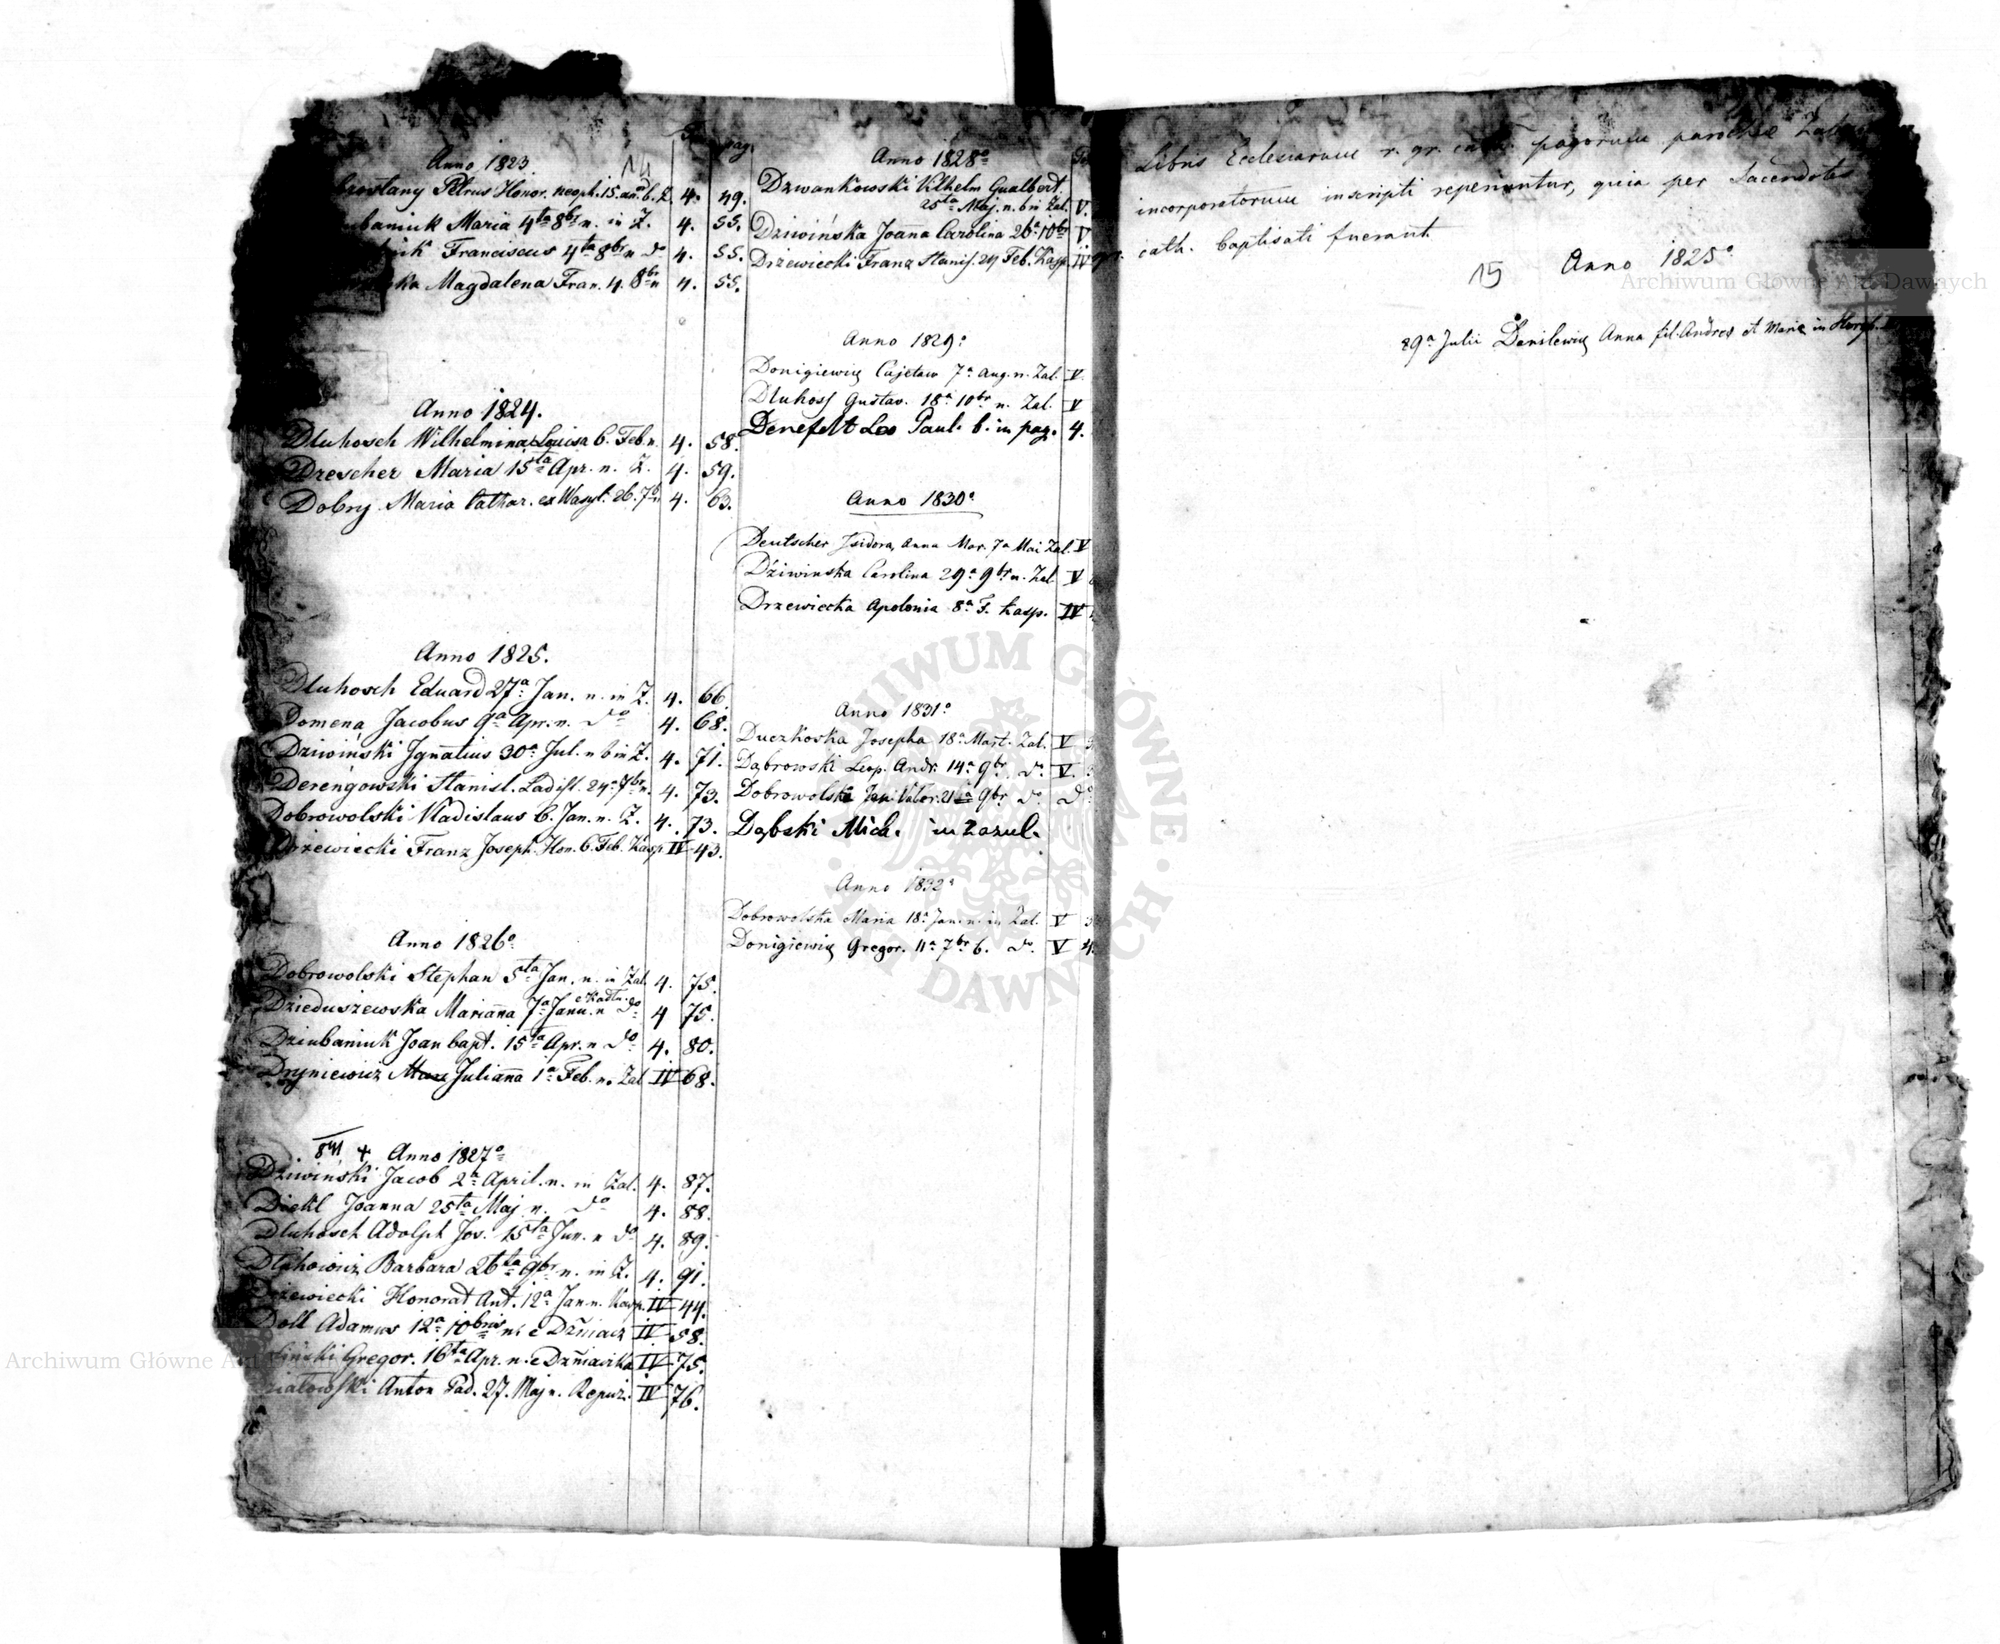 14
Anno 1823.
pag
browlany Petrus Honor. neoph. 15. ann. b. Z. 4. 49.
ubaniuk Maria 4ta 8br n. in Z. 4. 55.
Franciscus 4ta 8br n do 4. 55.
ska Magdalena Fran. 4. 8br n 4. 55.
Anno 1824.
Dluhosch Wilhelmina Louisa 6. Feb. n. 4. 58.
Drescher Maria 15ta Apr. n. Z. 4. 59.
Dobry Maria Cathar. ex Wasyl. 26. 7br n 4. 63.
Anno 1825.
Dluhosch Eduard 27a Jan. n. in Z. 4. 66.
Domena Jacobus 9a Apr. n. do 4. 68.
Dziwiński Ignatius 30a Jul. n b in Z. 4. 71.
Derengowski Stanisl. Ladisl. 24a 7br n. 4. 73.
Dobrowolski Vladislaus 6. Jan. n. Z. 4. 73.
Drzewiecki Franz Joseph. Hon. 6. Feb. Kasp IV 43.
Anno 1826o
Dobrowolski Stephan 5ta Jan. n. in Zal. 4. 75.
Dzieduszewska Marianna 7a Janu. n do 4 75.
Dziubaniuk Joan bapt. 15ta Apr. n do 4. 80.
Dryniewicz Julianna 1a Feb. n. Zal IV 68.
+ Anno 1827o
Dziwiński Jacob 2a April. n. in Zal. 4. 87.
Diekl Joanna 25ta Maj n. do 4. 88.
Dluhosch Adolph Jos. 15ta Jun. n do 4. 89.
Dluhowicz Barbara 26ta 9br n. in Z. 4. 91.
Drzewiecki Honorat Ant. 12a Jan n. Kasp. IV 44.
Doll Adamus 12a 10bris n. e Dźniacz IV 58.
Gregor. 16ta Apr. n. e Dźniaczka IV 75.
Anton Pad. 27. Maj n. Repuz. IV 76.
Anno 1828o
Dzwankowski Vilhelm Gualbert.
25ta Maj. n. b in Zal. V.
Dziwińska Joanna Carolina 26a 10br V
Drzewiecki Franz Stanis. 24 Feb. Kasp. IV
Anno 1829o
Donigiewicz Cajetan 7a Aug. n. Zal. V.
Dluhoss Gustav. 18a 10br n. Zal. V
Denefelt Leo Paul. b. in pag. 4.
Anno 1830o
Deutscher Isidora, Anna Mar. 7a Mai Zal. V
Dziwinska Carolina 29a 9br n. Zal V
Drzewiecka Apolonia 8a F. Kasp. IV
Anno 1831o
Duczkoska Josepha 18a Mart. Zal. V
Dąbrowski Leop. Andr. 14a 9br. do. V.
Dobrowolska Valer. 21a 9br do. do
Dąbski Mich. in Zazul.
Anno 1832o
Dobrowolska Maria 18a Jan. n. in Zal. V
Donigiewicz Gregor. 11a 7br b. do. V
Libris Ecclesiarum r. gr. cath. pagorum parochiae
incorporatorum inscripti reperiuntur, quia per Sacerdotes
gr. cath. baptisati fuerant
15 Anno 1825o
29a Julii Danilewicz Anna fil. Andres et Maria in
Archiwum Główne Akt Dawnych
Archiwum Główne Akt
ARCHIWUM GŁÓWNE · AKT DAWNYCH ·